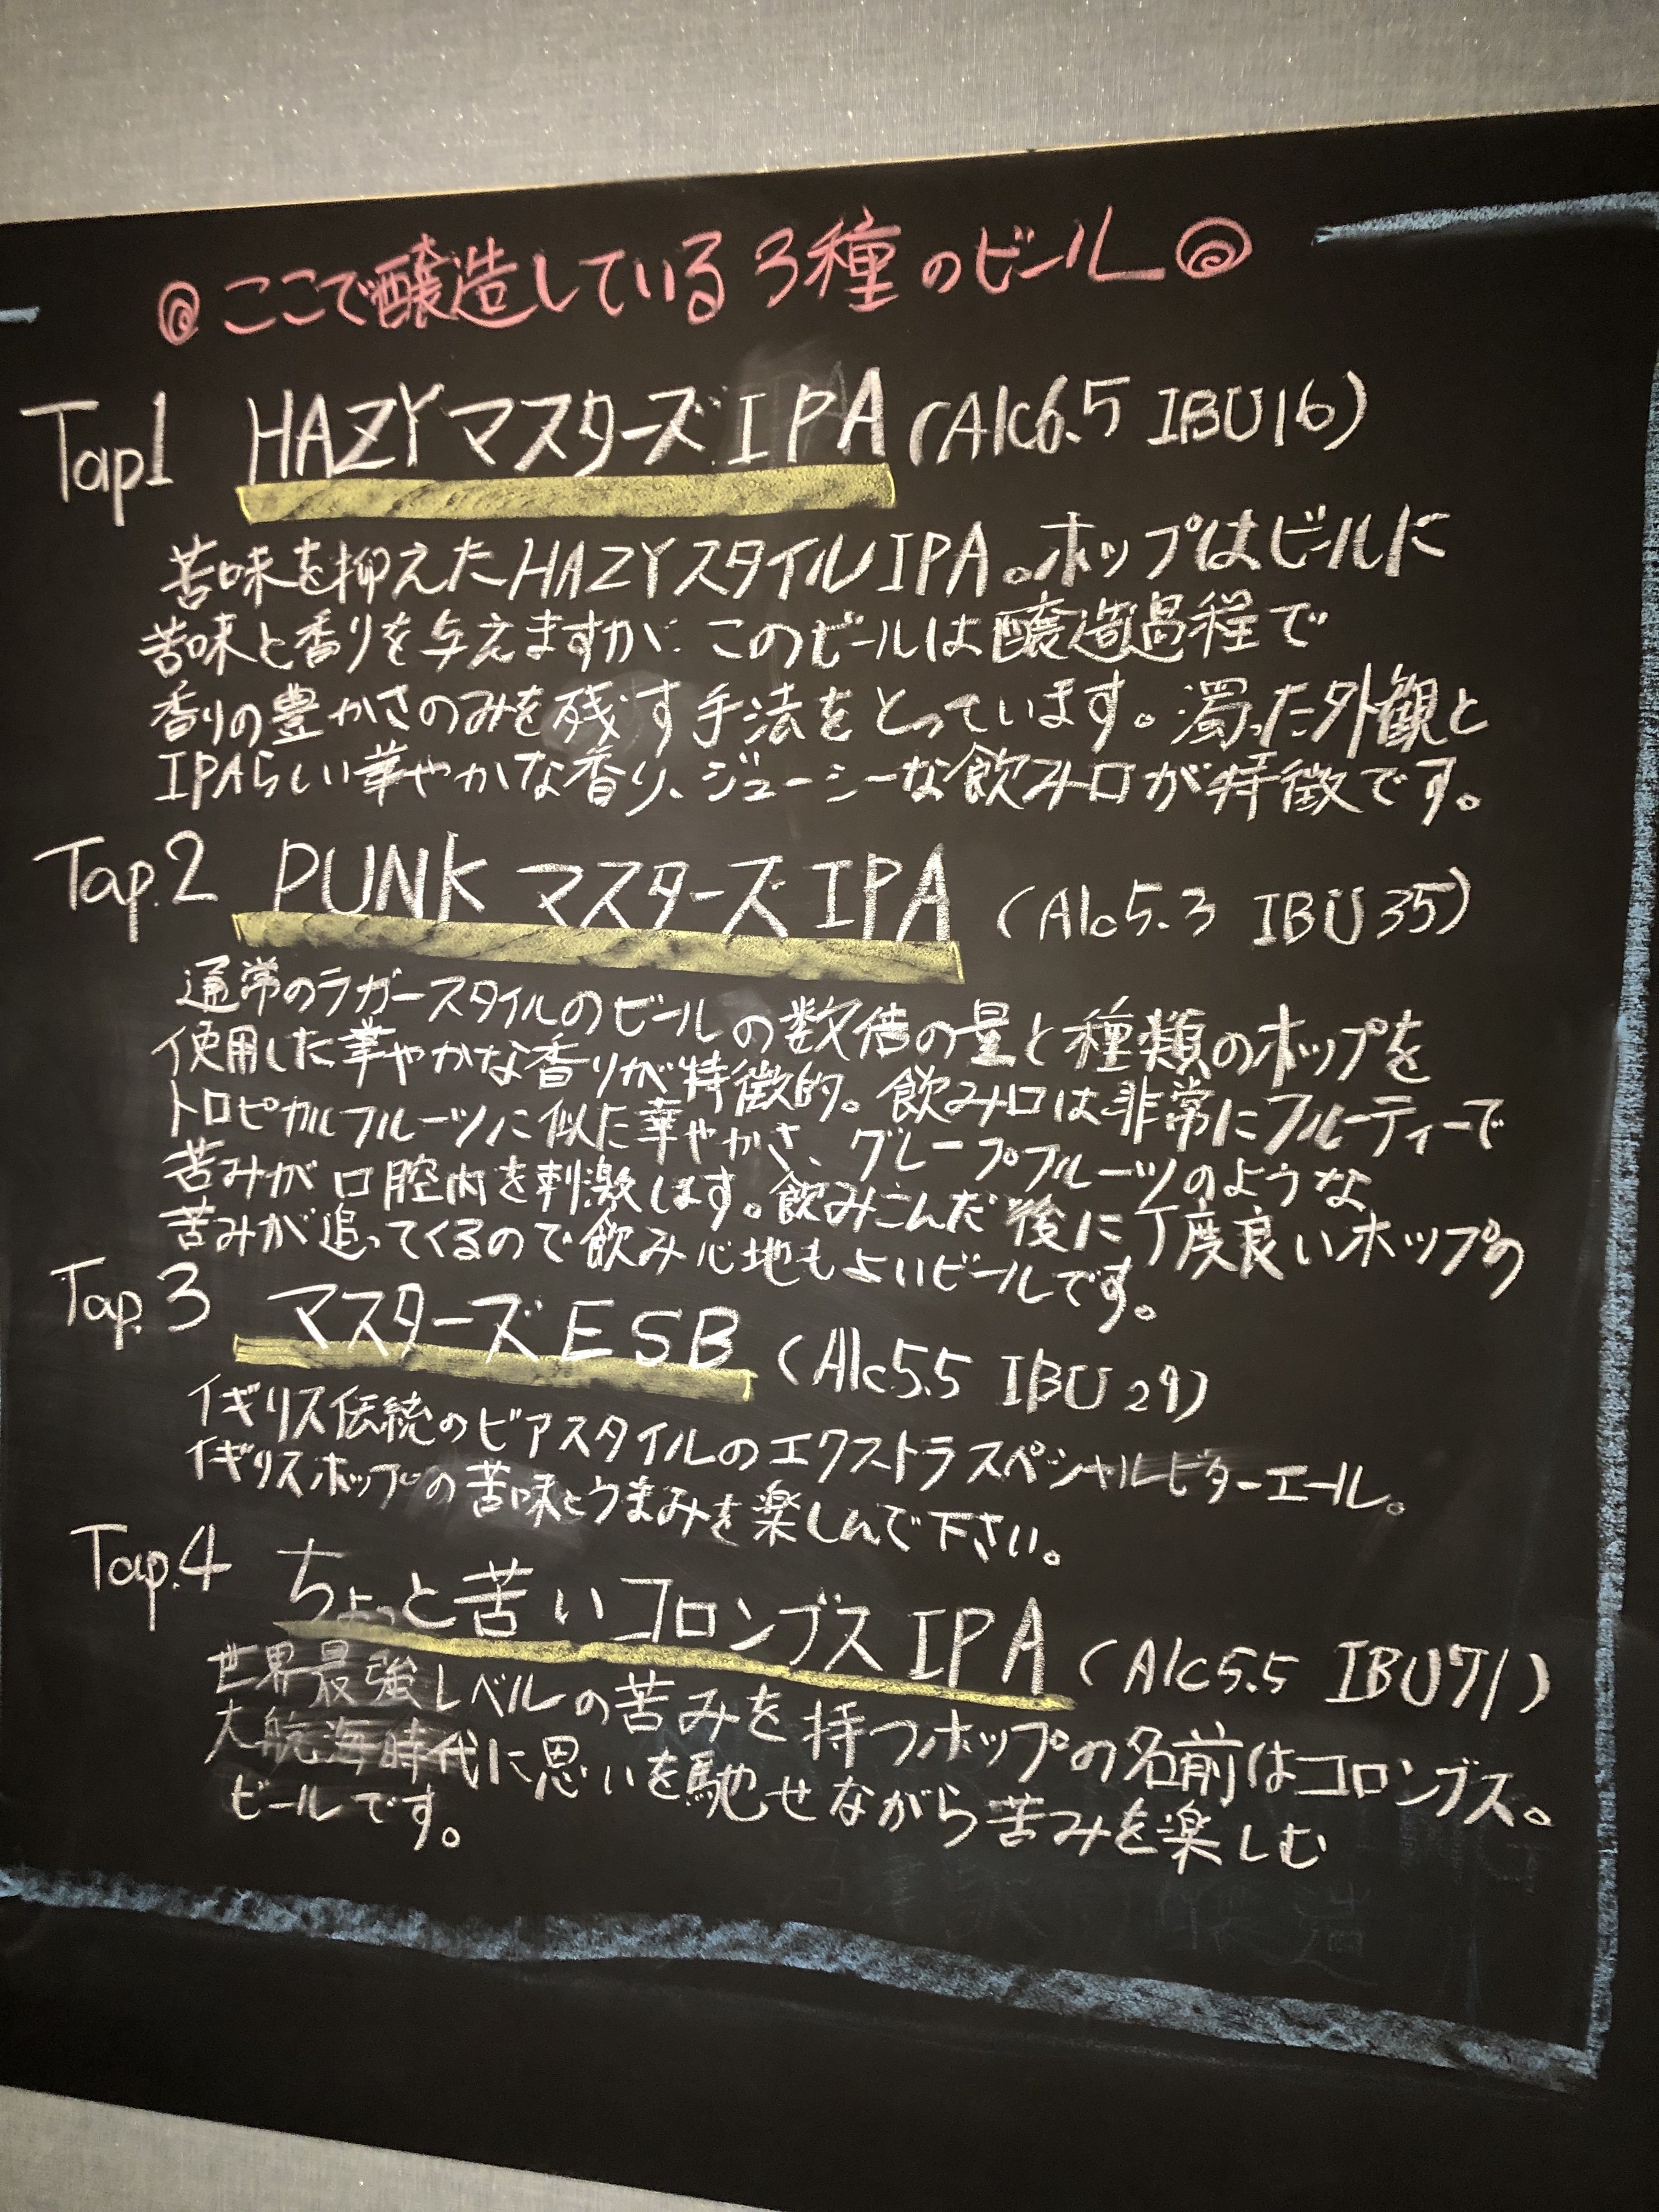 ここで醸造している3種のビール
Tap1 HAZYマスターズIPA (Alc6.5 IBU16)
苦味を抑えたHAZYスタイルIPA。ホップはビールに
苦味と香りを与えますが、このビールは醸造過程で
香りの豊かさのみを残す手法をとっています。濁った外観と
IPAらしい華やかな香り、ジューシーな飲み口が特徴です。
Tap.2 PUNKマスターズIPA (Alc5.3 IBU35)
通常のラガースタイルのビールの数倍の量と種類のホップを
使用した華やかな香りが特徴的。飲み口は非常にフルーティーで
トロピカルフルーツに似た華やかさ、グレープフルーツのような
苦みが口腔内を刺激します。飲みこんだ後に丁度良いホップの
苦みが追ってくるので飲み心地もよいビールです。
Tap.3 マスターズESB (Alc5.5 IBU29)
イギリス伝統のビアスタイルのエクストラスペシャルビターエール。
イギリスホップの苦味とうまみを楽しんで下さい。
Tap.4 ちょっと苦いコロンブスIPA (Alc5.5 IBU71)
世界最強レベルの苦みを持つホップの名前はコロンブス。
大航海時代に思いを馳せながら苦みを楽しむ
ビールです。